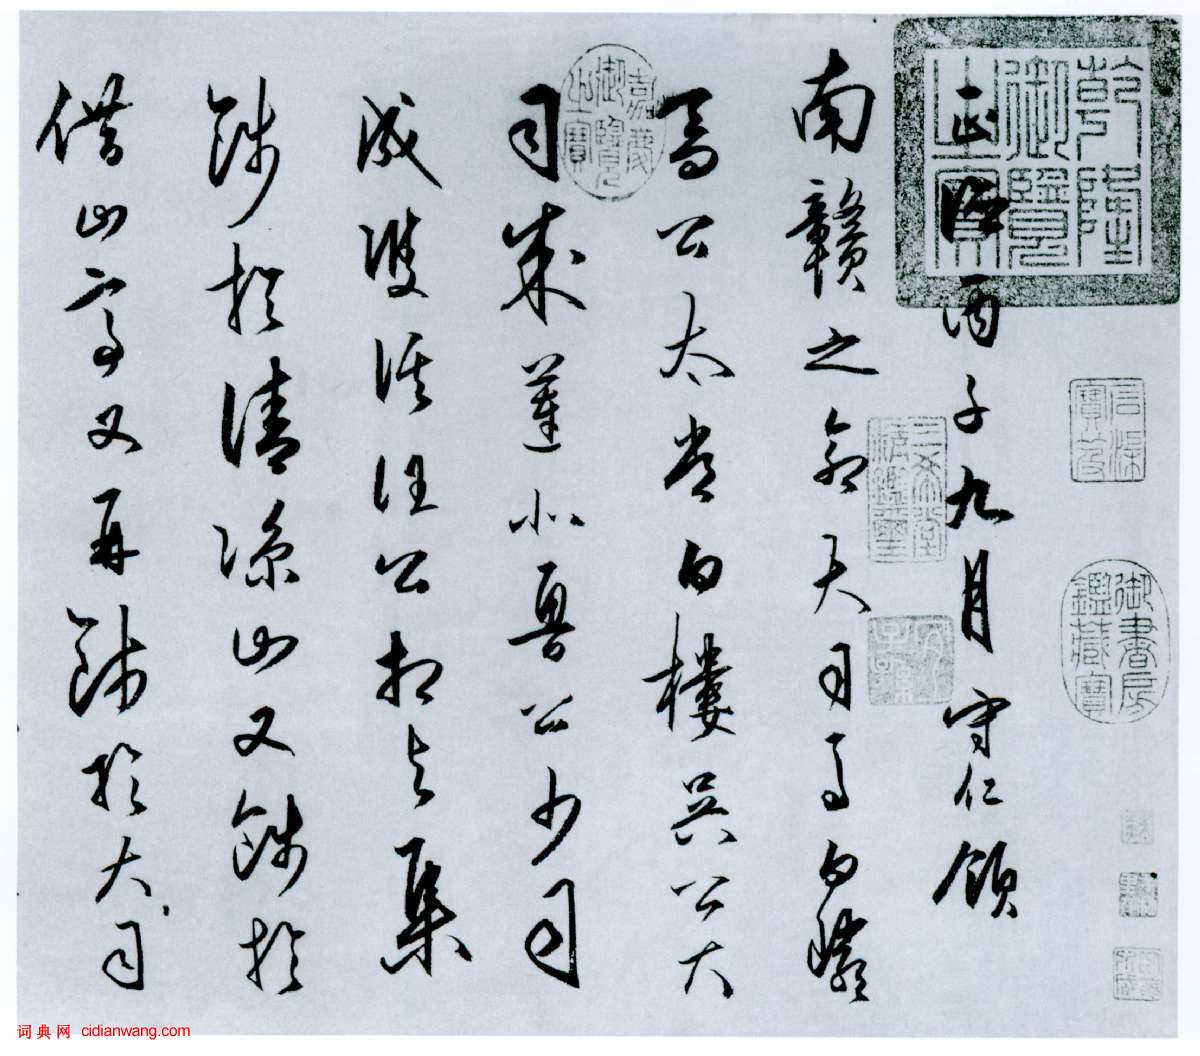 正德丙子九月守仁領
南贛之命大司馬白巖
喬公太常白樓吳公大
司成蓮北魯公少司
成雙溪汪公相與集
餞於清涼山又餞於
借山亭又再餞於大司
乾隆御覽之寶
嘉慶御覽之寶
三希堂精鑑璽
宜子孫
御書房鑑藏寶
石渠寶笈
词典网 cidianwang.com